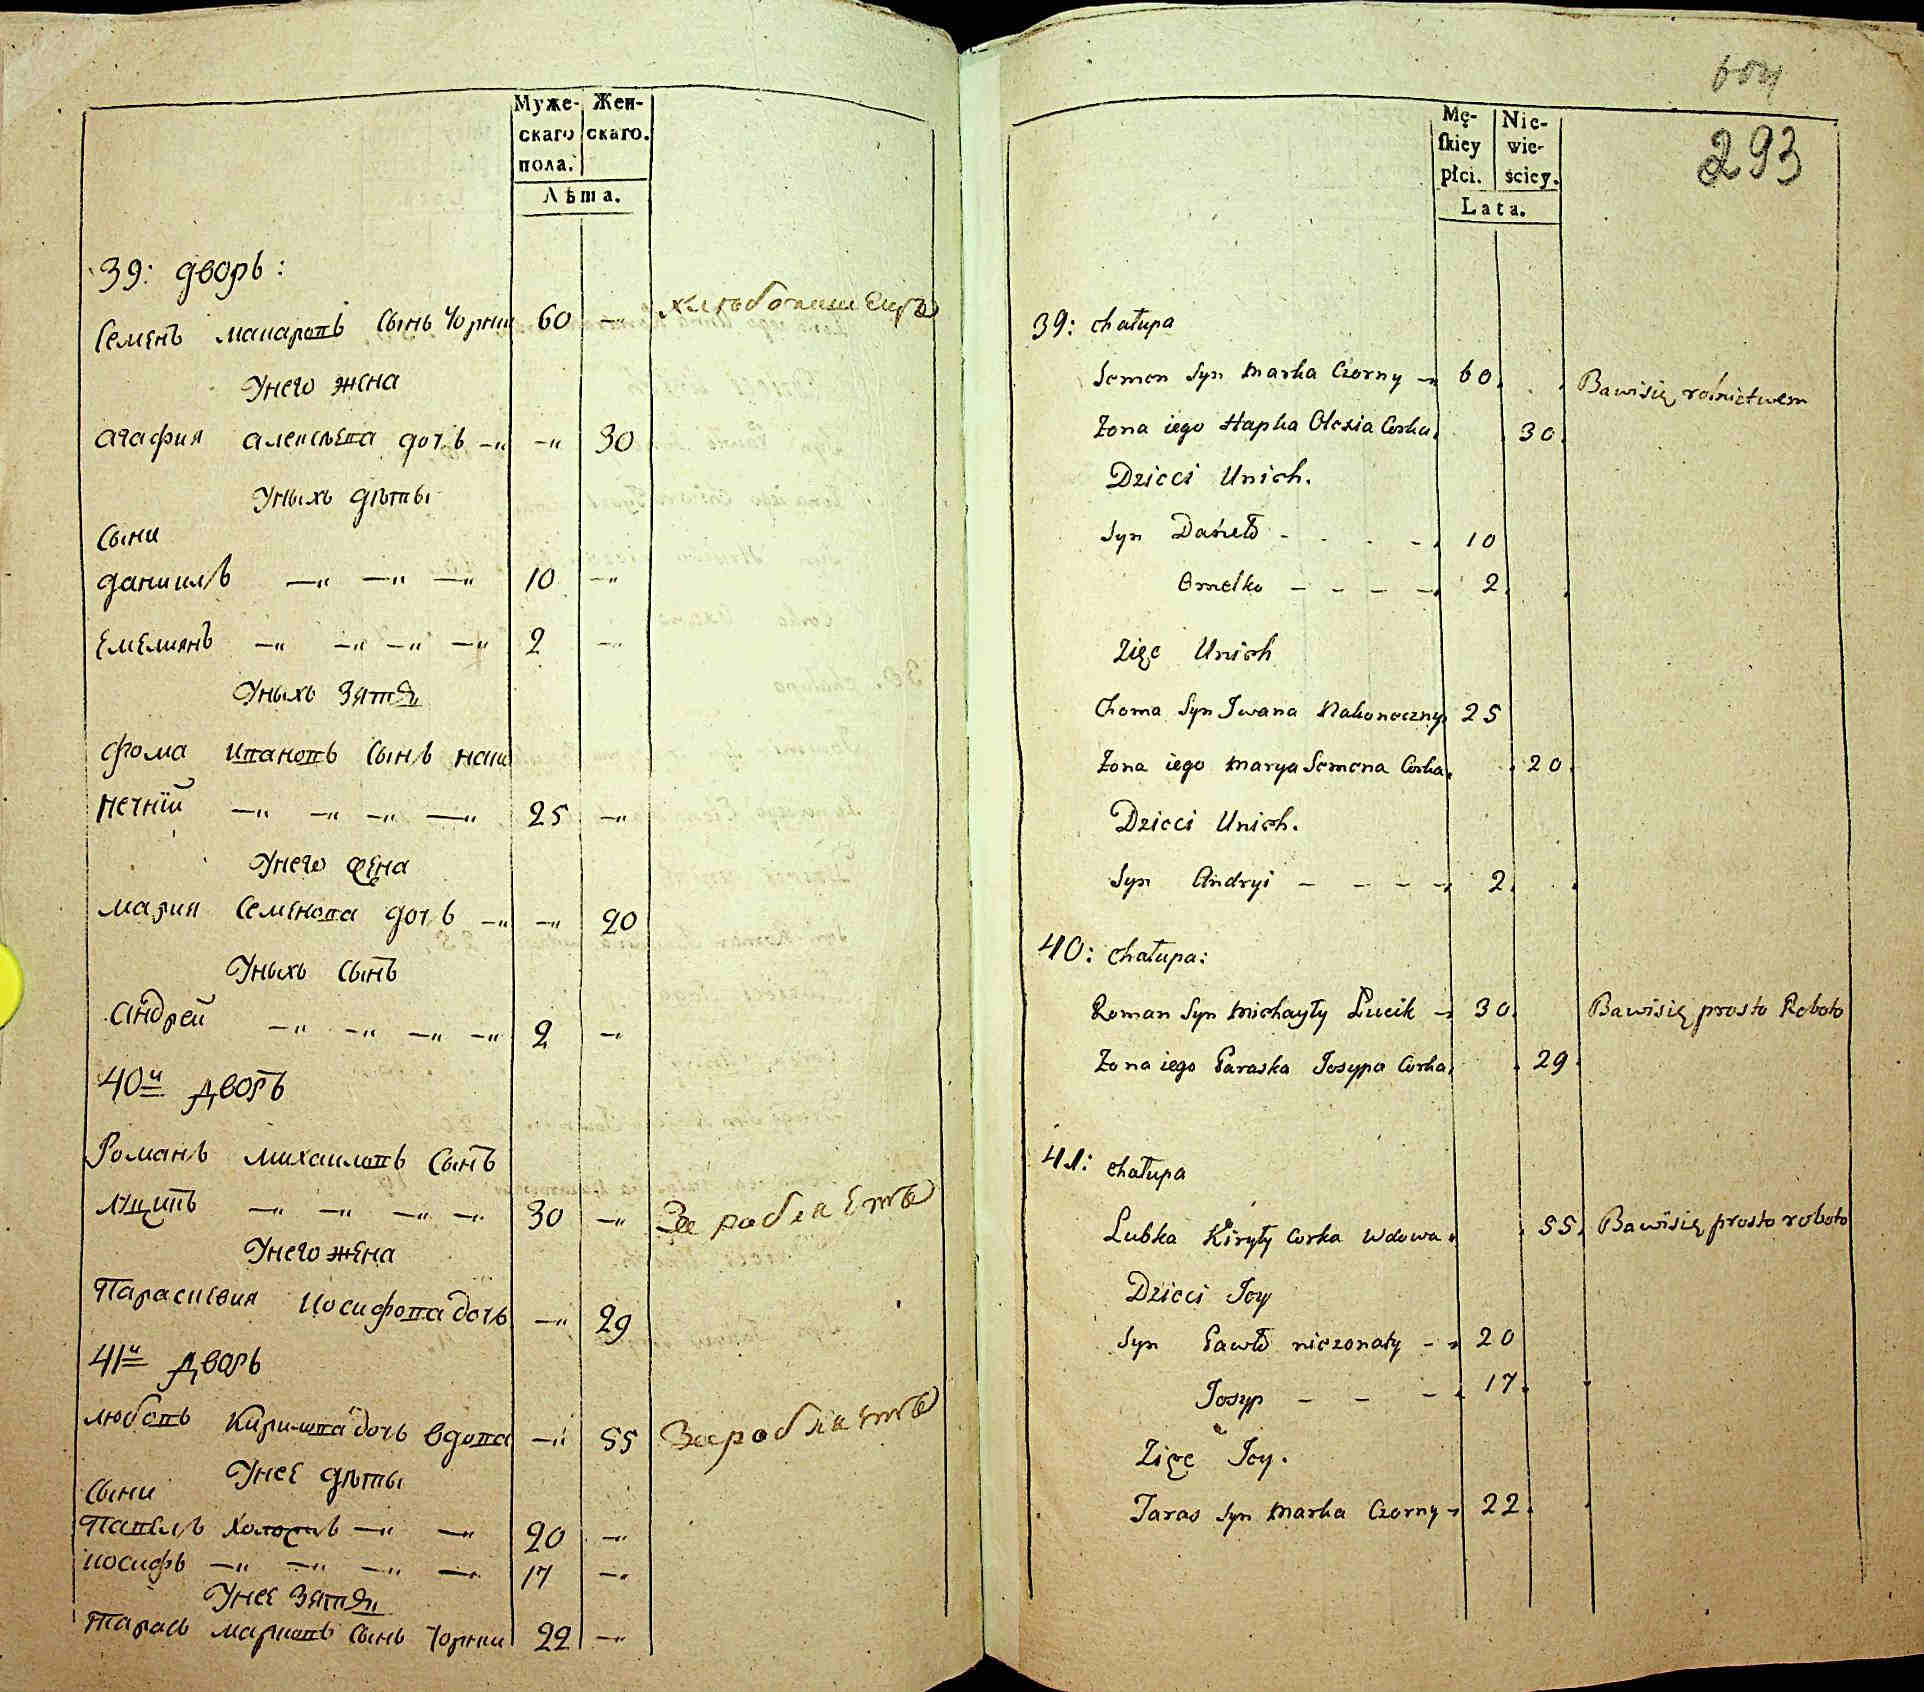 Муже- Жен-
скаго скаго.
пола.
Лѣта.
39: дворъ:
Семенъ макаровъ сынъ Чорнии 60 —
Унего жена
агафия алексѣева дочъ —„ —„ 30
Уныхъ дѣты
Сыни
даниилъ —„ —„ —„ 10 —„
емелиянъ —„ —„ —„ —„ 2 —„
Уныхъ зятя
фома ивановъ сынъ нако
нечнїй —„ —„ —„ —„ 25 —„
Унего жена
мария семенова дочъ —„ —„ 20
Уныхъ сынъ
андрей —„ —„ —„ —„ 2 —„
40й дворъ
Романъ михаиловъ сынъ
луцикъ —„ —„ —„ —„ 30 —„
Унего жена
Параскевия иосифова дочъ —„ 29
41й дворъ
любовъ кирилова дочъ вдова —„ 55
Унее дѣты
Сыни
Павелъ холостъ —„ —„ 20 —„
иосифъ —„ —„ —„ —„ 17 —„
Унее зятя
Тарасъ марковъ сынъ Чорнии 22 —„
Mę- Nie-
skiey wie-
płci. ściey.
Lata.
293
39: chałupa
Semen Syn Marka Czorny —„ 60. Bawisię rolnictwem
Żona iego Hapka Olexia Corka. 30.
Dzieci Unich.
Syn Daniło - - - - 10
Omelko - - - - 2.
Zięc Unich
Choma Syn Iwana Nakoneczny 25
Żona iego Marya Semena Corka. 20.
Dzieci Unich.
Syn Andryi - - - - 2.
40: chałupa:
Roman Syn Michayły Łucik - 30. Bawisię prosto Roboto
Żona iego Paraska Josypa Corka. 29.
41: chałupa
Lubka Kiryły Corka Wdowa. 55. Bawisię prosto roboto
Dzieci Jey
Syn Pawło nieżonaty - - 20
Josyp - - - 17.
Zięc Jey.
Taras Syn Marka Czorny - 22.